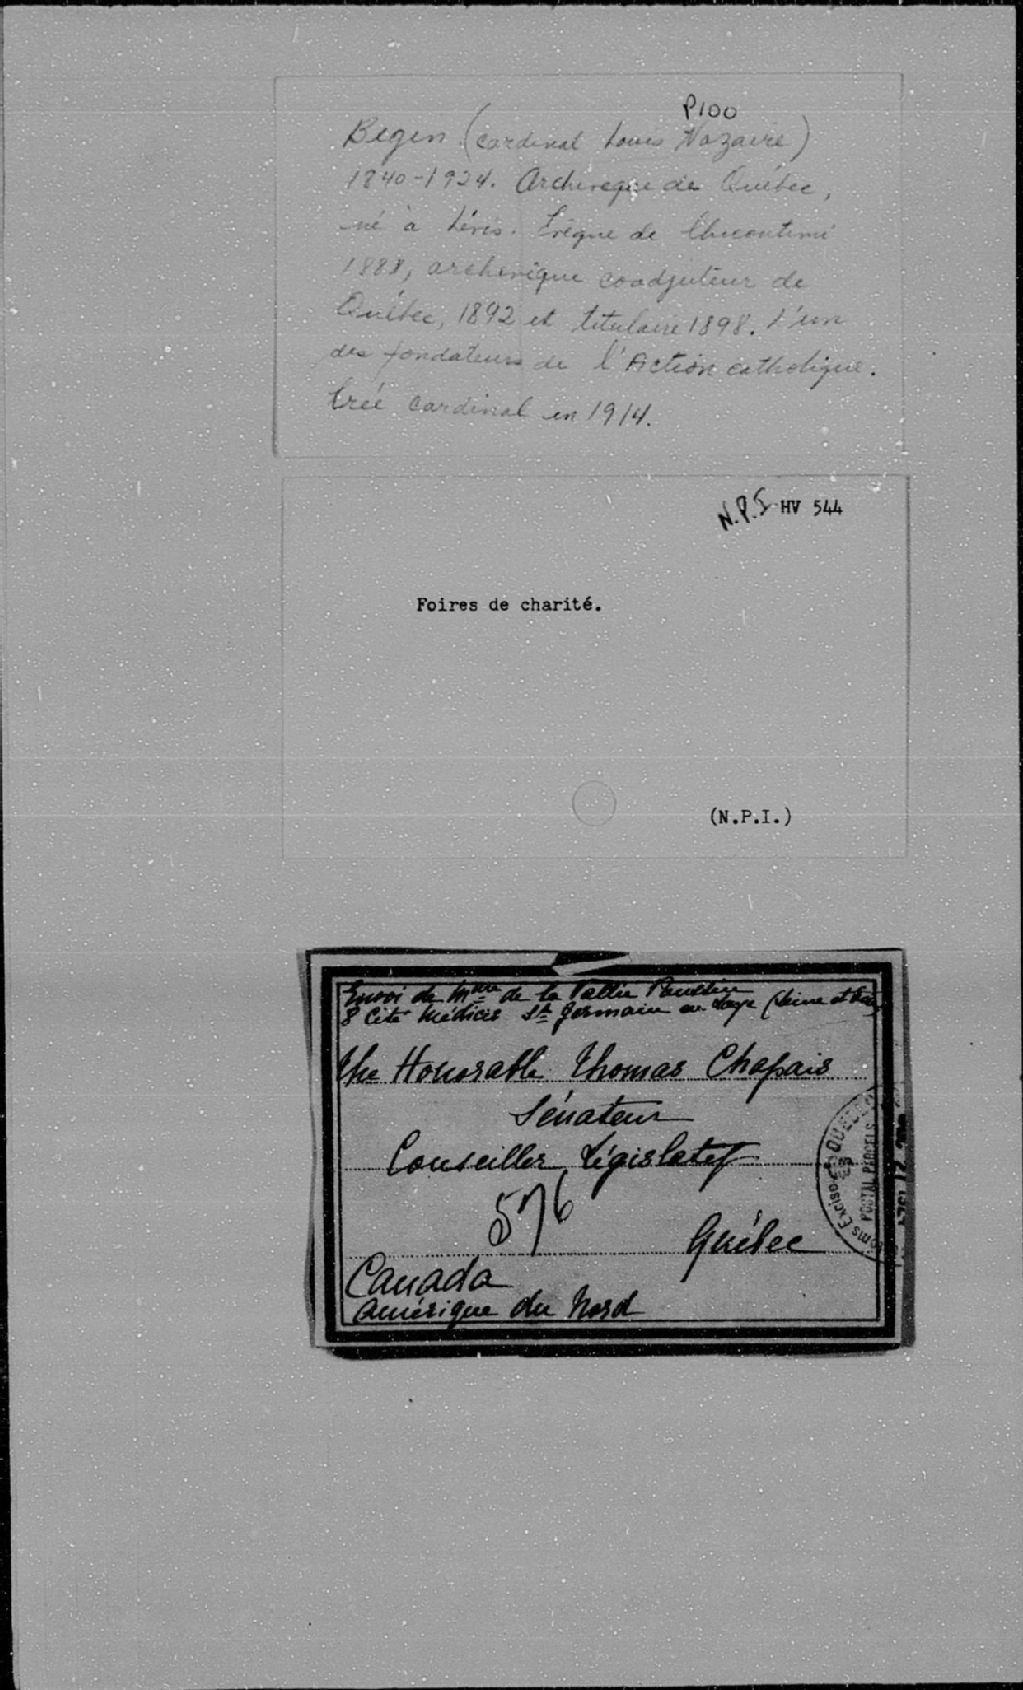 P100
Begin (cardinal Louis Nazaire)
1840-1924. Archevêque de Québec,
né à Lévis. Evêque de Chicoutimi
1888, archevêque coadjuteur de
Québec, 1892 et titulaire 1898. L'un
des fondateurs de l'Action catholique.
Créé cardinal en 1914.
N.P.I. HV 544
Foires de charité.
(N.P.I.)
Envoi de Mme de la Vallée Poussin
8 Cité Médicis St Germain en Laye (Seine et Oise)
The Honorable Thomas Chapais
Sénateur
Conseiller Législatif
576
Québec
Canada
Amérique du Nord
QUEBEC
POSTAL PARCELS